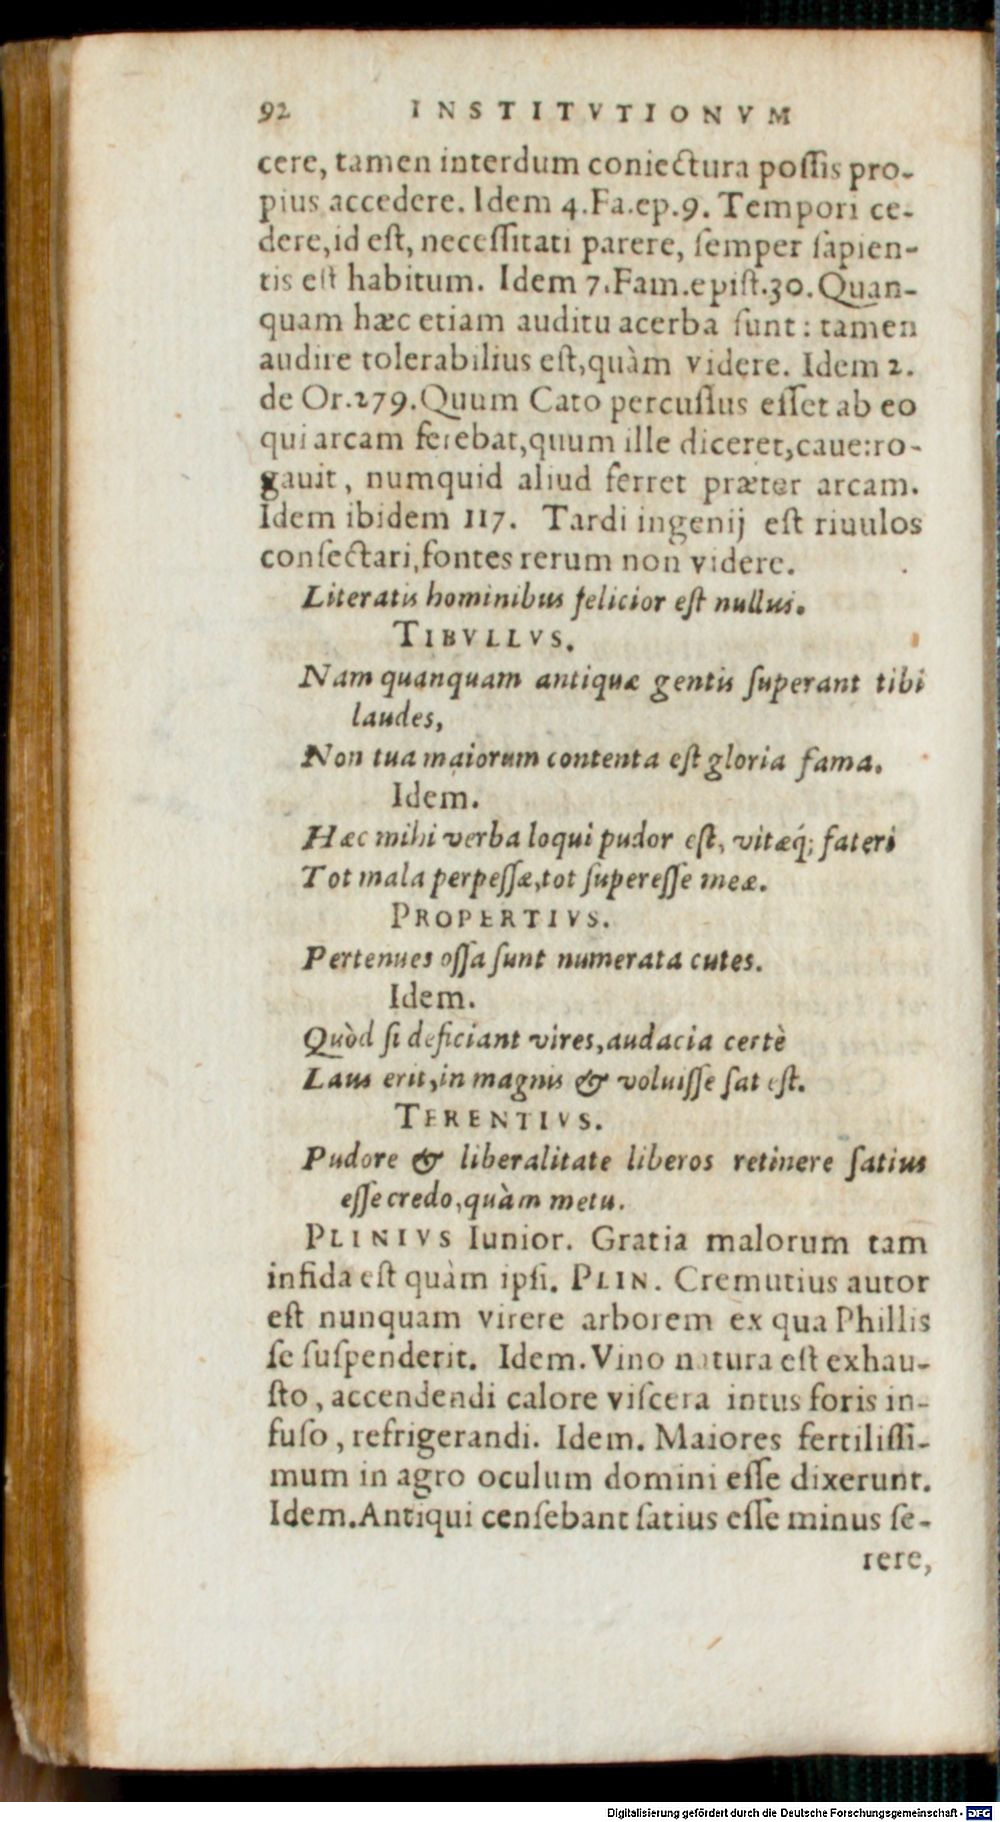 92 INSTITVTIONVM
cere, tamen interdum coniectura poſſis pro-
pius accedere. Idem 4.Fa.ep.9. Tempori ce-
dere, id eſt, neceſſitati parere, ſemper ſapien-
tis eſt habitum. Idem 7.Fam.epiſt.30. Quan-
quam hæc etiam auditu acerba ſunt: tamen
audire tolerabilius eſt, quàm videre. Idem 2.
de Or.279. Quum Cato percuſſus eſſet ab eo
qui arcam ferebat, quum ille diceret, caue: ro-
gauit, numquid aliud ferret præter arcam.
Idem ibidem 117. Tardi ingenij eſt riuulos
conſectari, fontes rerum non videre.
Literatis hominibus felicior eſt nullus.
TIBVLLVS.
Nam quanquam antiquæ gentis ſuperant tibi
laudes,
Non tua maiorum contenta eſt gloria fama.
Idem.
Hæc mihi verba loqui pudor eſt, vitæq́; fateri
Tot mala perpeſſæ, tot ſupereſſe meæ.
PROPERTIVS.
Pertenues oſſa ſunt numerata cutes.
Idem.
Quòd ſi deficiant vires, audacia certè
Laus erit, in magnis & voluiſſe ſat eſt.
TERENTIVS.
Pudore & liberalitate liberos retinere ſatius
eſſe credo, quàm metu.
PLINIVS Iunior. Gratia malorum tam
infida eſt quàm ipſi. PLIN. Cremutius autor
eſt nunquam virere arborem ex qua Phillis
ſe ſuſpenderit. Idem. Vino natura eſt exhau-
ſto, accendendi calore viſcera intus foris in-
fuſo, refrigerandi. Idem. Maiores fertiliſſi-
mum in agro oculum domini eſſe dixerunt.
Idem. Antiqui cenſebant ſatius eſſe minus ſe-
rere,
Digitalisierung gefördert durch die Deutsche Forschungsgemeinschaft - DFG